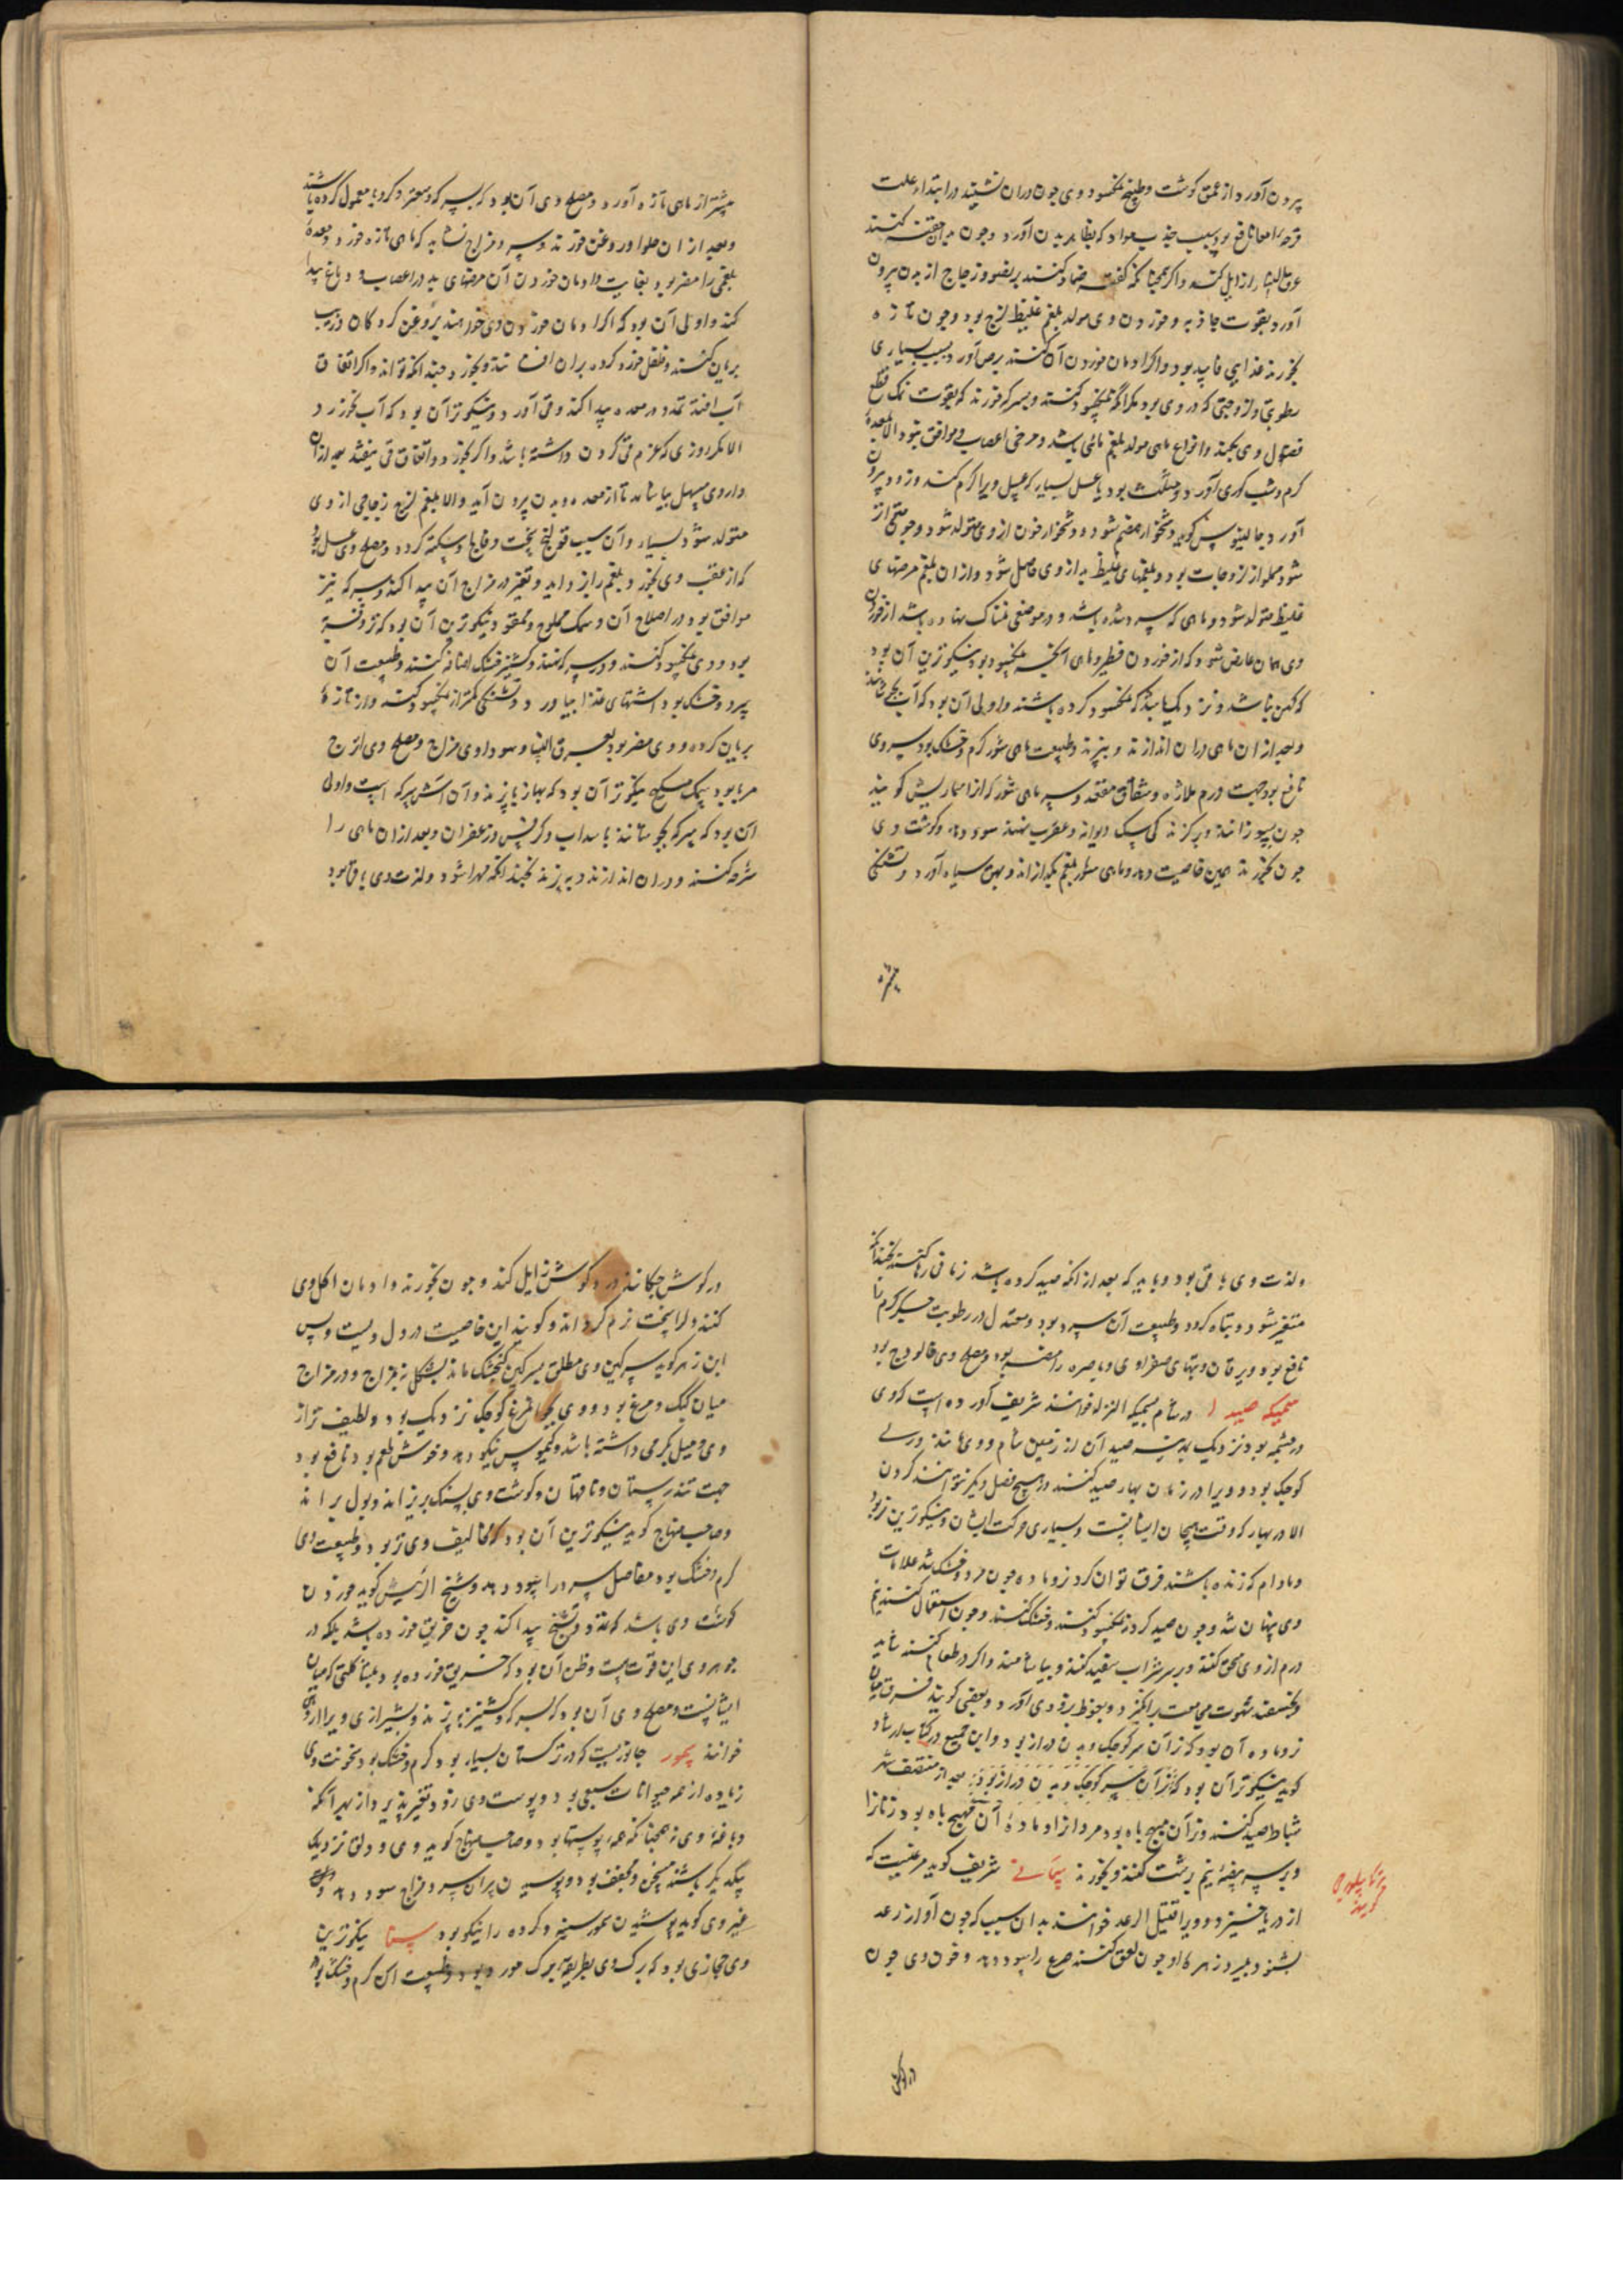 پیرون آورد از عمق کوشت و طبیخ نمکسود وی چون دران نشینند در ابتداء علت
قرحه امعا نافع بود بسبب جذب مواد که بظاهر بدن آورد و چون بدان حقنه کنند
عرق النسا را زایل کند و اگر همچنانکه گفته ضماد کنند پر نفسوز زجاج از بدن پیرون
آورد بقوت جاذبه و خوردن وی مولد بلغم غلیظ لزج بود و چون تازه
بخورند غذایی فاسد بود و اگر ادمان خوردن آن کنند برص آورد بسبب بسیاری
رطوبتی و لزوجتی که در وی بود مگر آنکه نمکسود کنند و بسرکه خورند که بقوت نمک قطع
فضول وی بکند و انواع ماهی مولد بلغم مائی باشد و مرخی اعصاب و موافق نبود الا معدهٔ
کرم و شب کوری آورد و مثلث بود یا عسل بسیار که عسل ویرا کرم کند و زود پیرون
آورد جالینوس کوید دشخوار هضم شود و دشخوار خون از وی متولد شود و چون
شود مملو از لزوجات بود و بلغمهای غلیظ بد از وی حاصل شود و از ان بلغم مرضهای
غلیظ متولد شود و ماهی که سرد شده باشد و در موضعی نمناک نهاده باشد از خوردن
وی همان عارض شود که از خوردن فطر و ماهی آنکه نمکسود بود نیکوترین آن بود
که کهن نباشد و نزدیک باشد که نمکسود کرده باشند و اولی آن بود که آب بجوشانند
و بعد از ان ماهی دران اندازند و بپزند و طبیعت ماهی شور کرم و خشک بود سر وی
نافع بود جهت ورم ملازه و شقاق مقعد و سر ماهی شور که از اسماریس کویند
چون بسوزانند و بر کزندکی سک دیوانه و عقرب نهند سود دهد و کوشت وی
چون بخورند همین خاصیت دهد و ماهی شور بلغم بکدازاند و بهق سیاه آورد و تشنکی
پیشتر
پیشتر از ماهی تازه آورد و مصلح وی آن بود که بسرکه و صعتر و کرویا معمول کرده باشند
و بعد از ان حلوا و روغن خورند و سرد مزاج نشاید که ماهی تازه خورد و معدهٔ
بلغمی را مضر بود بغایت و ادمان خوردن آن مرضهای بد در اعصاب و دماغ پیدا
کند و اولی آن بود که اگر ادمان خوردن وی خواهند بروغن کردکان و زیت
بریان کنند و فلفل خورد کرده بران افشانند و بخورد چندانکه تواند و اگر اتفاق
آب افتد تمدد در معده پیدا کند و قی آورد و نیکوتر آن بود که آب نخورد
الا مکر روزی که عزم قی کردن داشته باشد و اگر بخورد و اتفاق قی نیفتد بعد ازان
داروی مسهل بیاشامد تا از معده و بدن پیرون آید و الا بلغم لزج زجاجی از وی
متولد شود بسیار و آن سبب قولنج سخت و فالج و سکته کردد و مصلح وی عسل بود
که از عقب وی بخورد و بلغم را بزداید و تغیر در مزاج آن پیدا کند و سرکه نیز
موافق بود در اصلاح آن و سمک مملوح و ممقور و نیکوترین آن بود که ترو فربه
بود و وی نمکسود کنند و در سرکه نهند و کشنیز خشک اضافه کنند و طبیعت آن
سرد و خشک بود اشتهای غذا بیاورد و تشنکی کمتر از نمکسود کند و از تازهٔ
بریان کرده و وی مضر بود بعرق النسا و سوداوی مزاج و مصلح وی اترج
مربا بود سمک سکبج نیکوتر آن بود که بهازبا پزند و آن آش سرکه است و اولی
آن بود که سرکه بجوشانند با سداب و کرفس و زعفران و بعد ازان ماهی را
شرحه کنند و دران اندازند و بپزند چندانکه مهرا شود و لذت وی باقی بود
ولذت وی باقی بود و باید که بعد از آنکه صید کرده باشند زمانی رها کنند چندانکه
متغیر شود و تباه کردد و طبیعت آن سرد بود و معتدل در رطوبت جگر گرم را
نافع بود و یرقان و تبهای صفراوی و باصره را مضر بود و مصلح وی فالودج بود
سمیکه صیدا در شام سمیکه الزا خوانند شریف آورده است که وی
در چشمه بود نزدیک بمدینه صیدا آن از زمین شام و وی مانند ورلی
کوچک بود و ویرا در زمان بهار صید کنند در هیچ فصل دیگر نتوانند کردن
الا در بهار که وقت هیجان ایشانست و بسیاری حرکت ایشان و نیکوترین نر بود
و مادام که زنده باشند فرق توان کرد نر و ماده چون مرد و خشک شد علامات
وی پنهان شد و چون صید کردند نمکسود کنند و خشک کنند و چون استعمال کنند نیم
درم از وی سحق کنند و بر سر شراب سفید کنند و بیاشامند و اگر در طعام کنند شاید
و بخسبند شهوت مجامعت برانگیزد و نعوظ بزودی آورد و بعضی کویند فرق میان
نر و ماده آن بود که نر آن سر کوچک و بدن دراز بود و این جمیع در کتاب ارشاد
کوید نیکوتر آن بود که نر آن سر کوچک و بدن دراز بود و بعد از منتصف شهر
شباط صید کنند و نر آن مهیج باه بود مردانرا و مادهٔ آن مهیج باه بود زنانرا
و بر سر بیضهٔ نیم برشت کنند و بخورند سمانی شریف کوید مرغیست که
از دریا خیزد و ویرا قتیل الرعد خوانند بدان سبب که چون آواز رعد
بشنود بمیرد زهرهٔ او چون لعق کنند صرع را سود دهد و خون وی چون
کویند
در کوش
در کوش چکانند درد کوش زایل کند و چون بخورند و ادمان اکل وی
کنند دل را سخت نرم کرداند و کویند این خاصیت در دل ویست و بس
ابن زهر کوید سرکین وی مطلق بسرکین کنجشک ماند بشکل نه بمزاج و در مزاج
میان کبک و مرغ بود و وی بجوامرغ کوچک نزدیک بود و لطیف تر از
وی و میل بگرمی داشته باشد و کیموس نیکو دهد و خوش طعم بود نافع بود
جهت تندرستان و ناقهان و کوشت وی سنک بریزاند و بول براند
و صاحب منهاج کوید نیکوترین آن بود که مخالیف وی تر بود و طبیعت وی
کرم و خشک بود مفاصل سرد را سود دهد و شیخ الرئیس کوید خوردن
کوشت وی باشد که تمدد و تشنج پیدا کند چون خربق خورده باشد بلکه در
جوهر وی این قوت است و ظن آن بود که خربق خورده بود بمشاکلتی که میان
ایشانست و مصلح وی آن بود که بسرکه و کشنیز بپزند و بشیرازی ویرا
خوانند سمور جانوریست که در ترکستان بسیار بود کرم و خشک بود سخونت وی
زیاده از همه حیوانات سبعی بود و پوست وی زود تغیر پذیرد از بهر آنکه
دباغهٔ وی نه همچنانکه همهٔ پوستها بود و صاحب منهاج کوید وی و دلق نزدیک
یکدیکر باشند مسخن و مجفف بود و پوسیدن پیران سرد مزاج سود دهد
غیر وی کوید پوشیدن سمور سینه و کرده را نیکو بود سنا نیکوترین
وی حجازی بود که برک وی بطریقهٔ برک مورد بود و طبیعت آن کرم و خشک بود